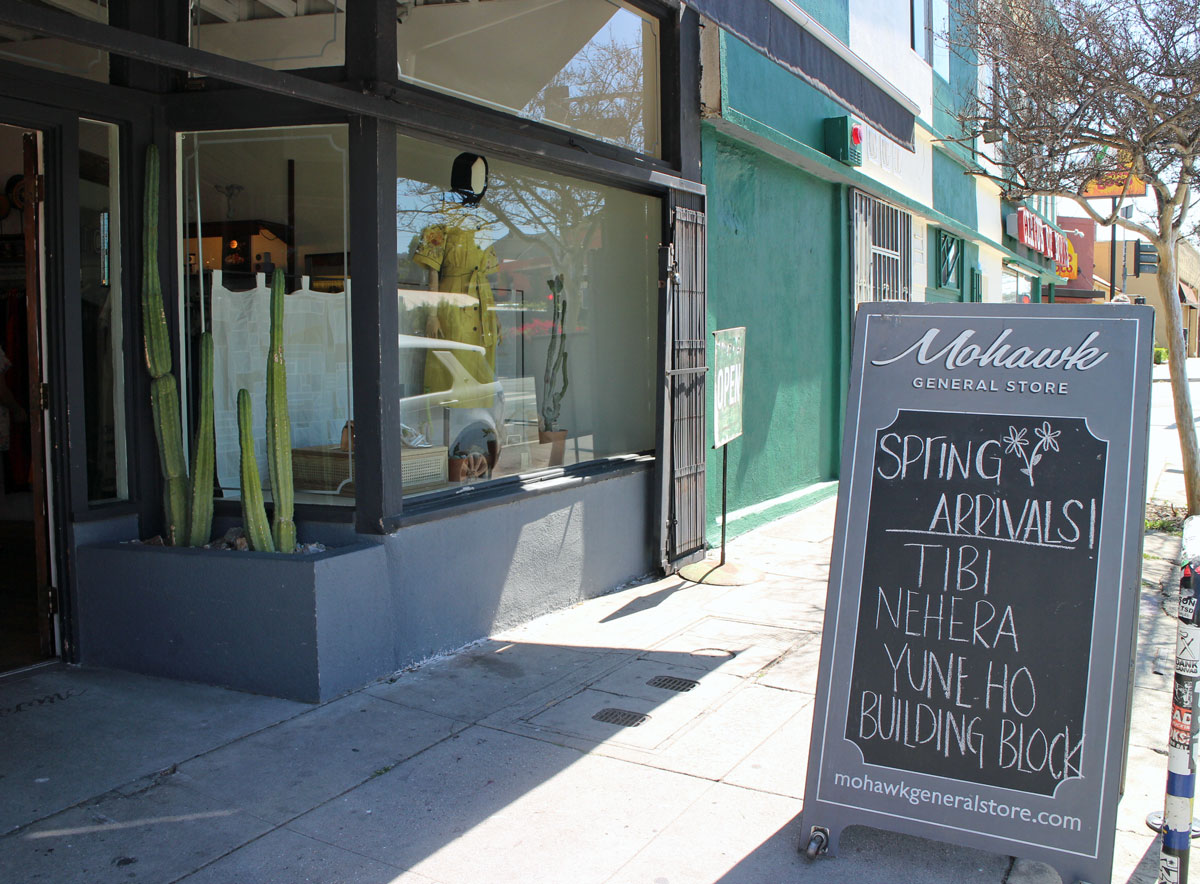 Mohawk
GENERAL STORE
SPrING
ARRIVALS!
TIBI
NEHERA
YUNE HO
BUILDING BLOCK
mohawkgeneralstore.com
OPEN